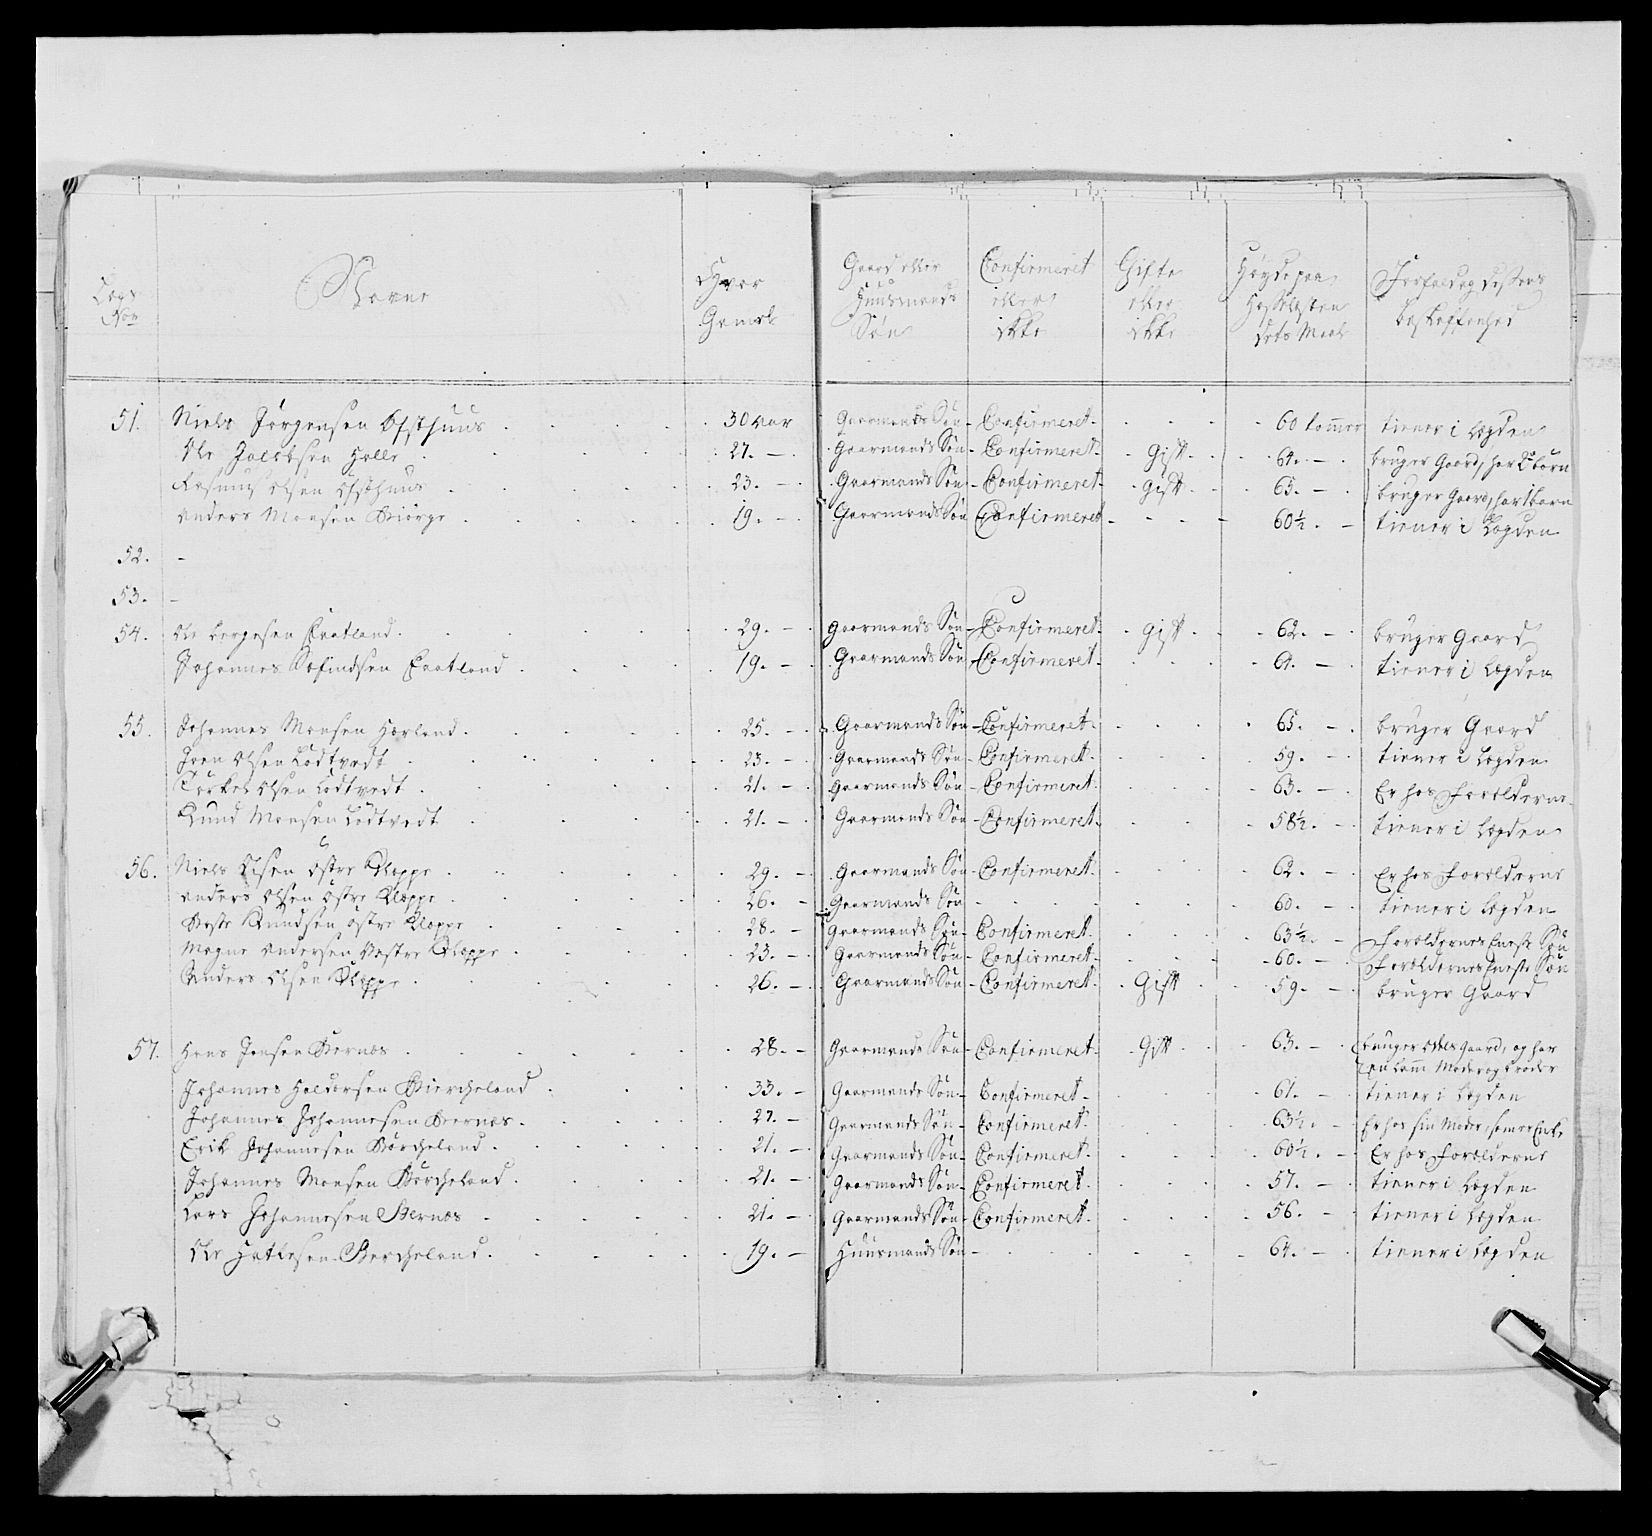 Lægs No. | Navne | Hvor Gamel | Gaard eller Huusmands Søn | Confirmeret eller ikke | Gifte eller ikke | Høyde paa Hesselæsten dets Maal | Forfald og dessens beskaffenhed
51. Niels Jørgensen Østhuus 30 aar Gaarmands Søn Confirmeret 60 tommer tiener i Lægden
Ole Jacobsen Helle 27. Gaarmands Søn Confirmeret Gift 61. bruger Gaard, har 2 børn
Rasmus Olsen Østhuus 23. Gaarmands Søn Confirmeret Gift 65. bruger Gaard, har 1 barn
Anders Monsen Biørge 19. Gaarmands Søn Confirmeret 60½. tiener i Lægden
52. -
53. -
54. Ole Bergesen Eratland 29. Gaarmands Søn Confirmeret Gift 62. bruger Gaard
Johannes Safindsen Eratland 19. Gaarmands Søn Confirmeret 61. tiener i Lægden
55. Johannes Monsen Hærland 25. Gaarmands Søn Confirmeret 65. bruger Gaard
Joen Olsen Lødtvedt 23. Gaarmands Søn Confirmeret 59. tiener i Lægden
Torkel Olsen Lødtvedt 21. Gaarmands Søn Confirmeret 63. Er hos Forældrene
Knud Monsen Lødtvedt 21. Gaarmands Søn Confirmeret 58½. tiener i Lægden
56. Niels Olsen Østre Kleppe 29. Gaarmands Søn Confirmeret 62. Er hos Forældrene
Anders Olsen Østre Kleppe 26. Gaarmands Søn 60. tiener i Lægden
Knudsen Østre Kleppe 28. Gaarmands Søn Confirmeret 63½. Forældrenes Eneste Søn
Mogne Andersen Vestre Kleppe 23. Gaarmands Søn Confirmeret 60. Forældrenes Eneste Søn
Anders Olsen Kleppe 26. Gaarmands Søn Confirmeret Gift 59. bruger Gaard
57. Hans Jensen Bernæs 28. Gaarmands Søn Confirmeret Gift 63. bruger Odels Gaard, og har
en lam Moder og broder
Johannes Haldorsen Biercheland 33. Gaarmands Søn Confirmeret 61. tiener i Lægden
Johannes Johannesen Bernæs 27. Gaarmands Søn Confirmeret 63½. Er hos sin Moder, som er Enke
Erik Johannesen Bercheland 21. Gaarmands Søn Confirmeret 60½. Er hos Forældrene
Johannes Monsen Bercheland 21. Gaarmands Søn Confirmeret 57. tiener i Lægden
Lars Johannesen Bernæs 21. Gaarmands Søn Confirmeret 56. tiener i Lægden
Ole Hattesen Bercheland 19. Huusmands Søn 64. tiener i Lægden